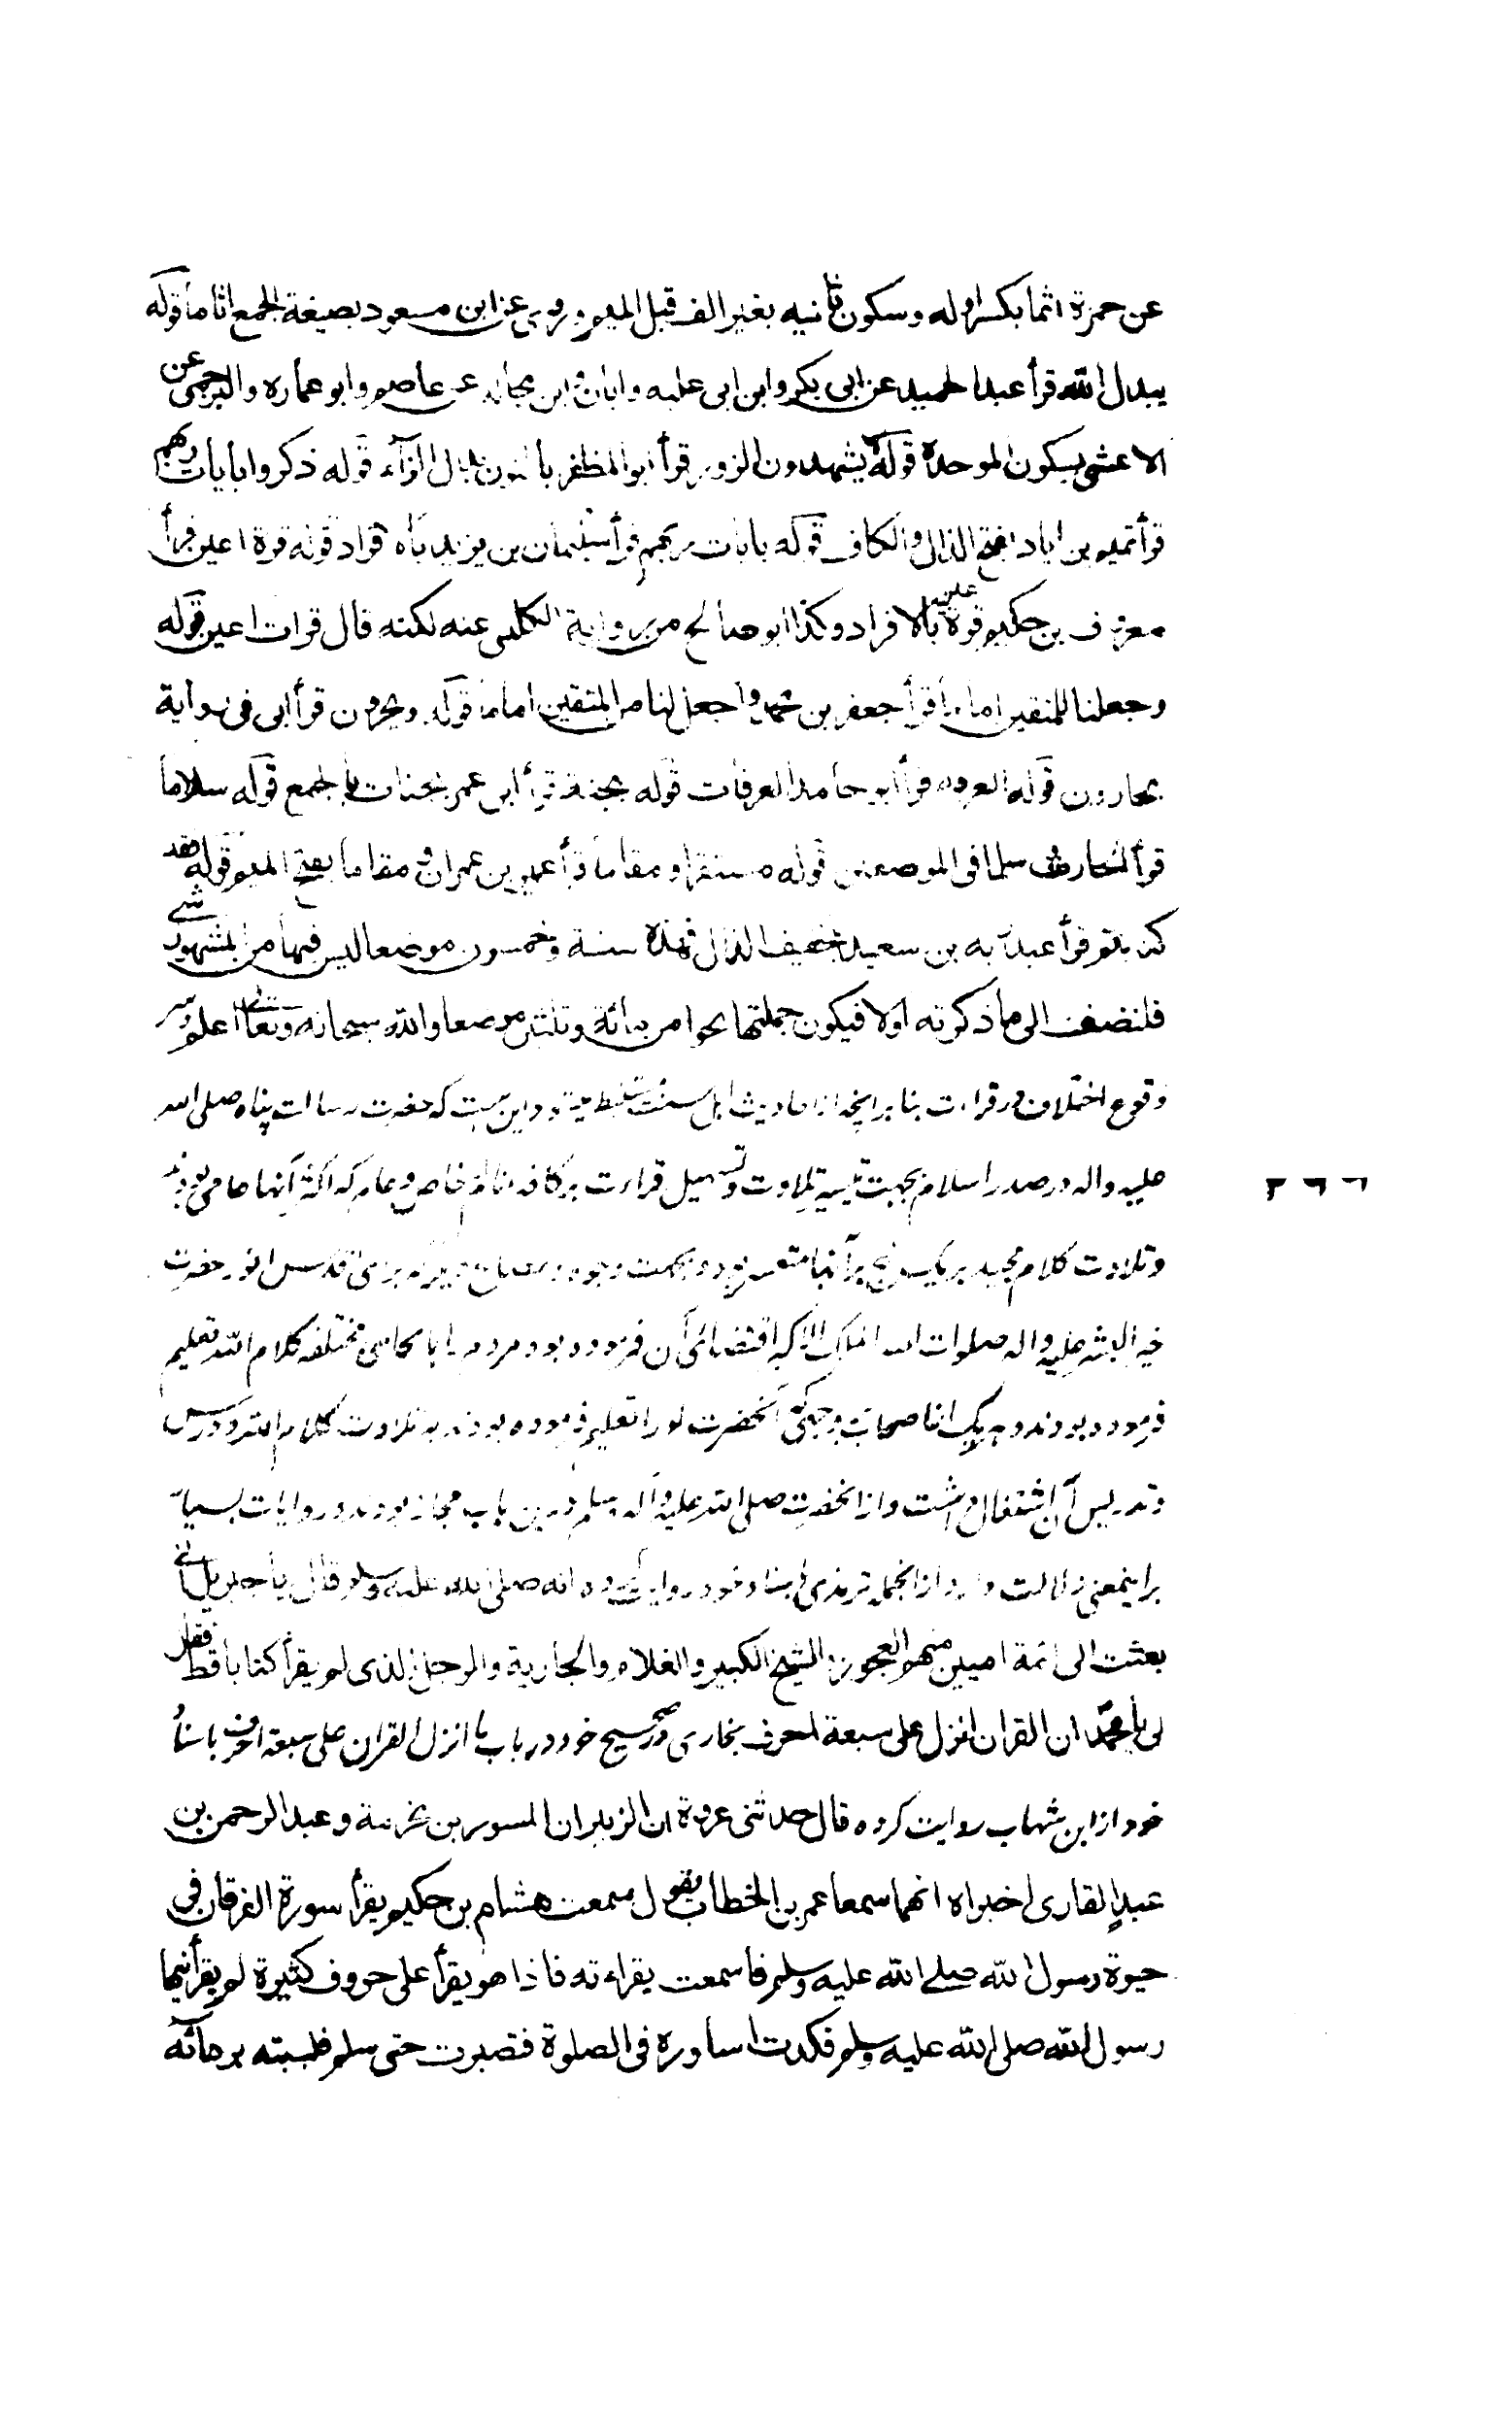 عن حمزة اثما بكسر اوله وسكون ثانيه بغير الف قبل الميم وروى عن ابن مسعود بصيغة الجمع اثاما قوله
يبدل الله قرأ عبد الحميد عن ابى بكر وابن ابى علبه وابان وابن مجالد عن عاصم وابو عماره والبرجمى عن
الاعشى بسكون الموحدة قوله لا يشهدون الزور قرأ ابو المظفر بالنون بدل الزآء قوله ذكروا بايات ربهم
قرأ تميم بن اياد بفتح الذال والكاف قوله بايات ربهم قرأ سليمان بن يزيد باه قراد قوله قرة اعين قرأ
معروف بن حكيم قرة عين بالافراد وكذا ابو صالح من رواية الكلبى عنه لكنه قال قرات اعين قوله
وجعلنا للمتقين اماما قرأ جعفر بن محمد واجعل لنا من المتقين اماما قوله ويجزون قرأ ابى فى رواية
يجازون قوله الغرفه قرأ ابو حامد الغرفات قوله بجنة قرأ ابن عمر بجنات بالجمع قوله سلاما
قرأ الحارث سلما فى الموضعين قوله مستقرا ومقاما قرأ عمير بن عمران ومقاما بفتح الميم قوله فقد
كذبتم قرأ عبد ربه بن سعيد بتخفيف الذال فهذه ستة وخمسون موضعا ليس فيها من المشهور شے
فلنضف الى ما ذكرته اولا فيكون جملتها نحوا من مائة وثلثين موضعا والله سبحانه وتعالى اعلم وسر
وقوع اختلاف در قراءت بنا بر انچه از احاديث اهل سنت مستنبط ميشود اين ست كه حضرت رسالت پناه صلى الله
عليه واله در صدر اسلام بجهت تيسير تلاوت وتسهيل قراءت بر كافه انام خاص وعام كه اكثر آنها عامى بودند
وتلاوت كلام مجيد بر يك نهج بر آنها متعسر بود وبجهت وجوه ومصالح ديگر كه بر راى اقدس انور حضرت
خير البشر عليه واله صلوات الله الملك الاكبر اقتضائى آن فرموده بود مردم را بانحاى مختلفه كلام الله تعليم
فرموده بودند وهر يك از اصحاب بوجهى كه آنحضرت او را تعليم فرموده بودند به تلاوت كلام الله ودرس
وتدريس آن اشتغال داشت واز آنحضرت صلى الله عليه وآله وسلم درين باب مجاز بودند وروايات بسيار
برينمعنى دلالت دارد ازانجمله ترمذى باسناد خود روايت كرده انه صلى الله عليه وسلم قال يا جبريل انى
بعثت الى ائمة اميين منهم العجوز والشيخ الكبير والغلام والجارية والرجل الذى لم يقرأ كتابا قط فقال
لى يا محمد ان القران انزل على سبعة احرف بخارى در صحيح خود در باب ما انزل القران على سبعة احرف باسناد
خود از ابن شهاب روايت كرده قال حدثنى عروة ابن الزبير ان المسور بن مخرمة وعبد الرحمن بن
عبد القارى اخبراه انهما سمعا عمر بن الخطاب يقول سمعت هشام بن حكيم يقرأ سورة الفرقان فى
حيوة رسول الله صلى الله عليه وسلم فاسمعت يقراءته فاذا هو يقرأ على حروف كثيرة لم يقرأنيها
رسول الله صلى الله عليه وسلم فكدت اساوره فى الصلوة فتصبرت حتى سلم فلببته بردائه